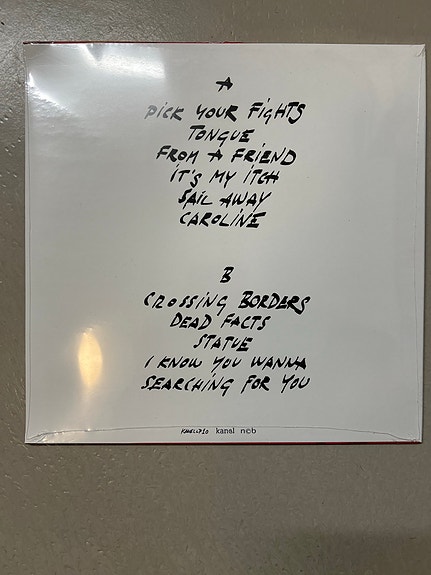 A
PiCK YOUR FiGHTS
TONGUE
FROM A FRiEND
iT'S MY iTCH
SAiL AWAY
CAROLiNE
B
CROSSiNG BORDERS
DEAD FACTS
STATUE
I KNOW YOU WANNA
SEARCHiNG FOR YOU
kanal